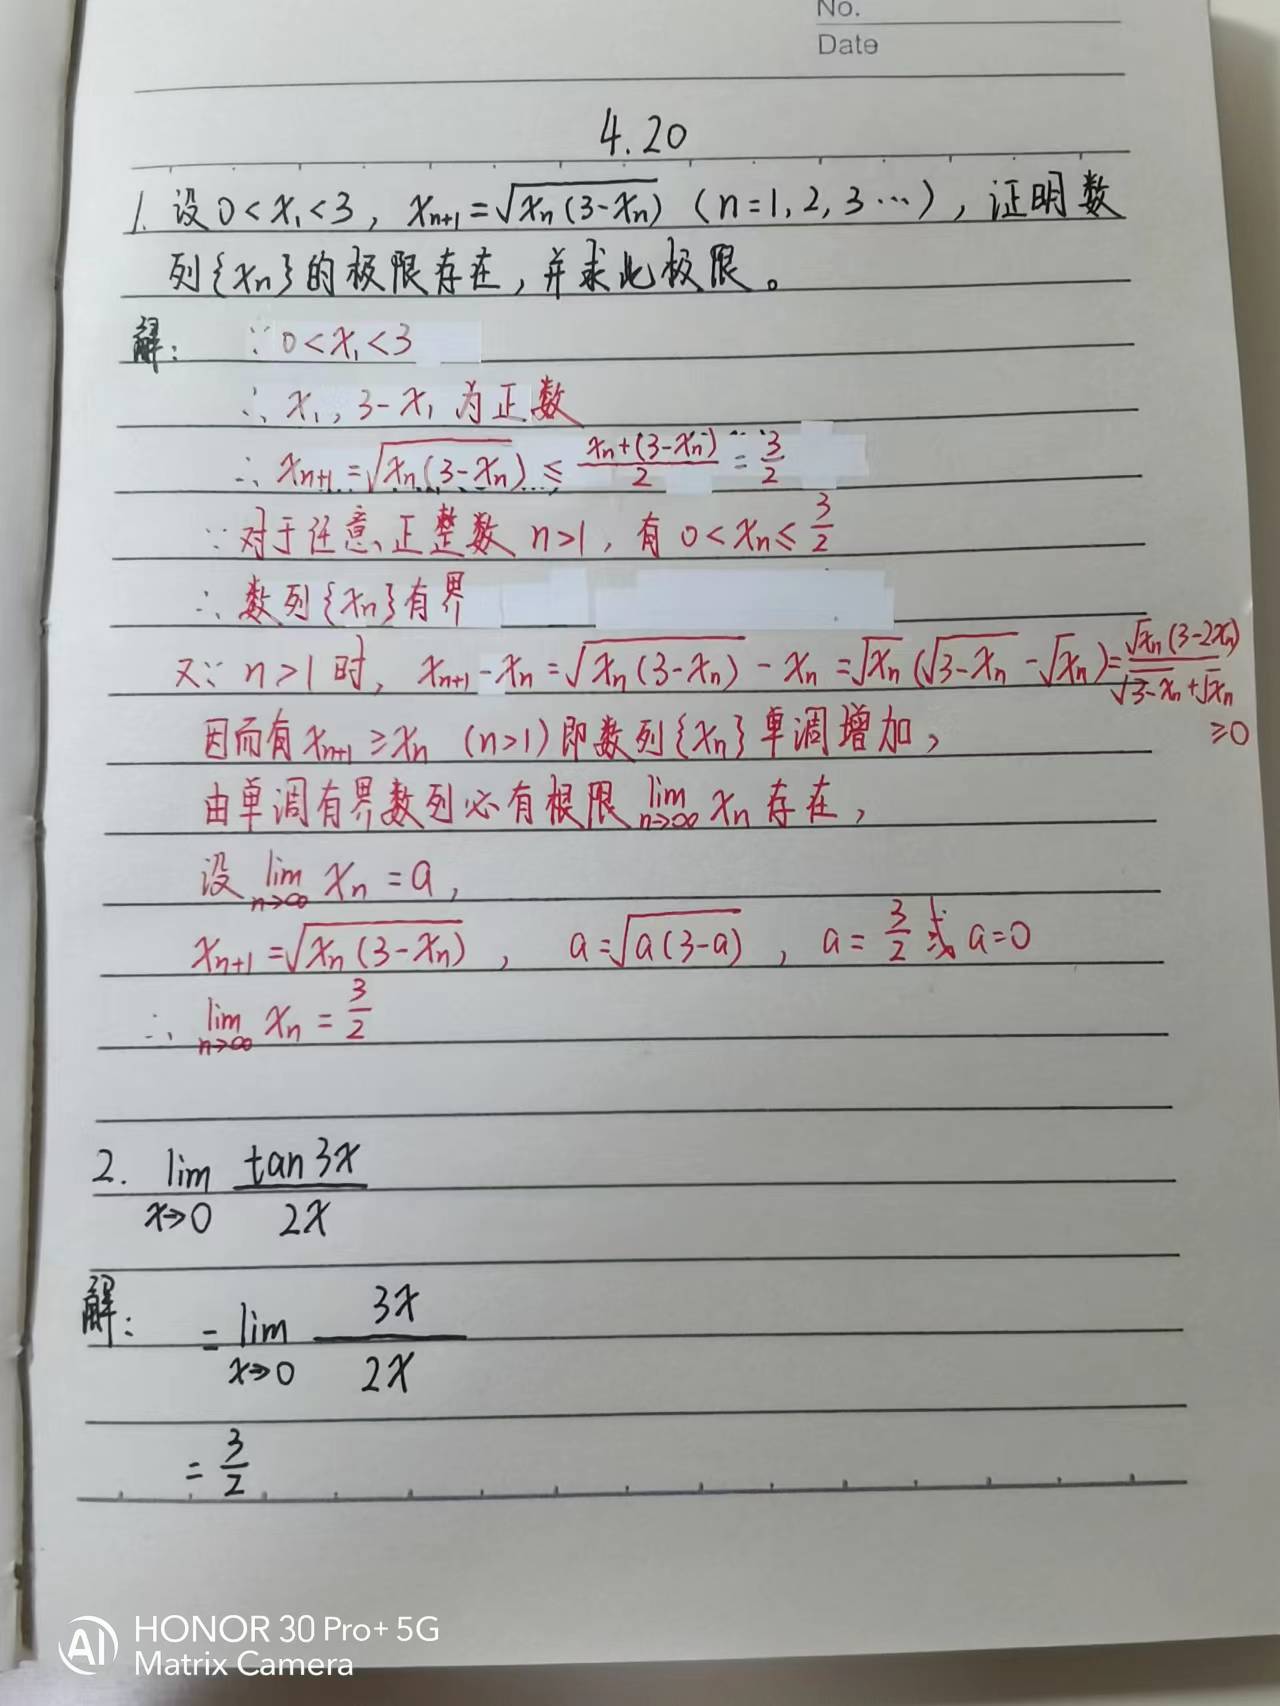 No.
Date
4.20
1. 设 0<x₁<3, xₙ₊₁=√(xₙ(3-xₙ)) (n=1,2,3…), 证明数
列{xₙ}的极限存在,并求此极限。
解: ∵ 0<x₁<3
∴ x₁, 3-x₁ 为正数
∴ xₙ₊₁=√(xₙ(3-xₙ)) ≤ (xₙ+(3-xₙ))/2 = 3/2
∵ 对于任意正整数 n>1, 有 0<xₙ≤3/2
∴ 数列{xₙ}有界
又∵ n>1 时, xₙ₊₁-xₙ=√(xₙ(3-xₙ))-xₙ=√xₙ(√(3-xₙ)-√xₙ)=√xₙ(3-2xₙ)/(√(3-xₙ)+√xₙ)
≥0
因而有 xₙ₊₁≥xₙ (n>1) 即数列{xₙ}单调增加,
由单调有界数列必有极限 lim n→∞ xₙ 存在,
设 lim n→∞ xₙ=a,
xₙ₊₁=√(xₙ(3-xₙ)), a=√(a(3-a)), a=3/2 或 a=0
∴ lim n→∞ xₙ=3/2
2. lim x→0 tan3x/2x
解: = lim x→0 3x/2x
= 3/2
AI HONOR 30 Pro+ 5G
Matrix Camera